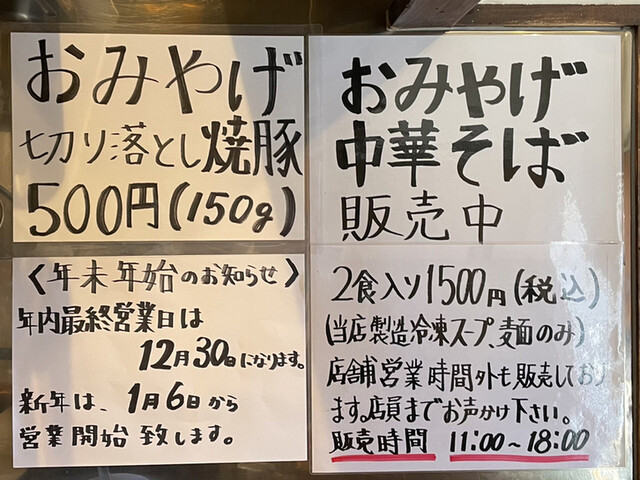 おみやげ
切り落とし焼豚
500円(150g)
〈年末年始のお知らせ〉
年内最終営業日は
12月30日になります。
新年は、1月6日から
営業開始致します。
おみやげ
中華そば
販売中
2食入り1500円(税込)
(当店製造冷凍スープ、麺のみ)
店舗営業時間外も販売しており
ます。店員までお声かけ下さい。
販売時間 11:00~18:00